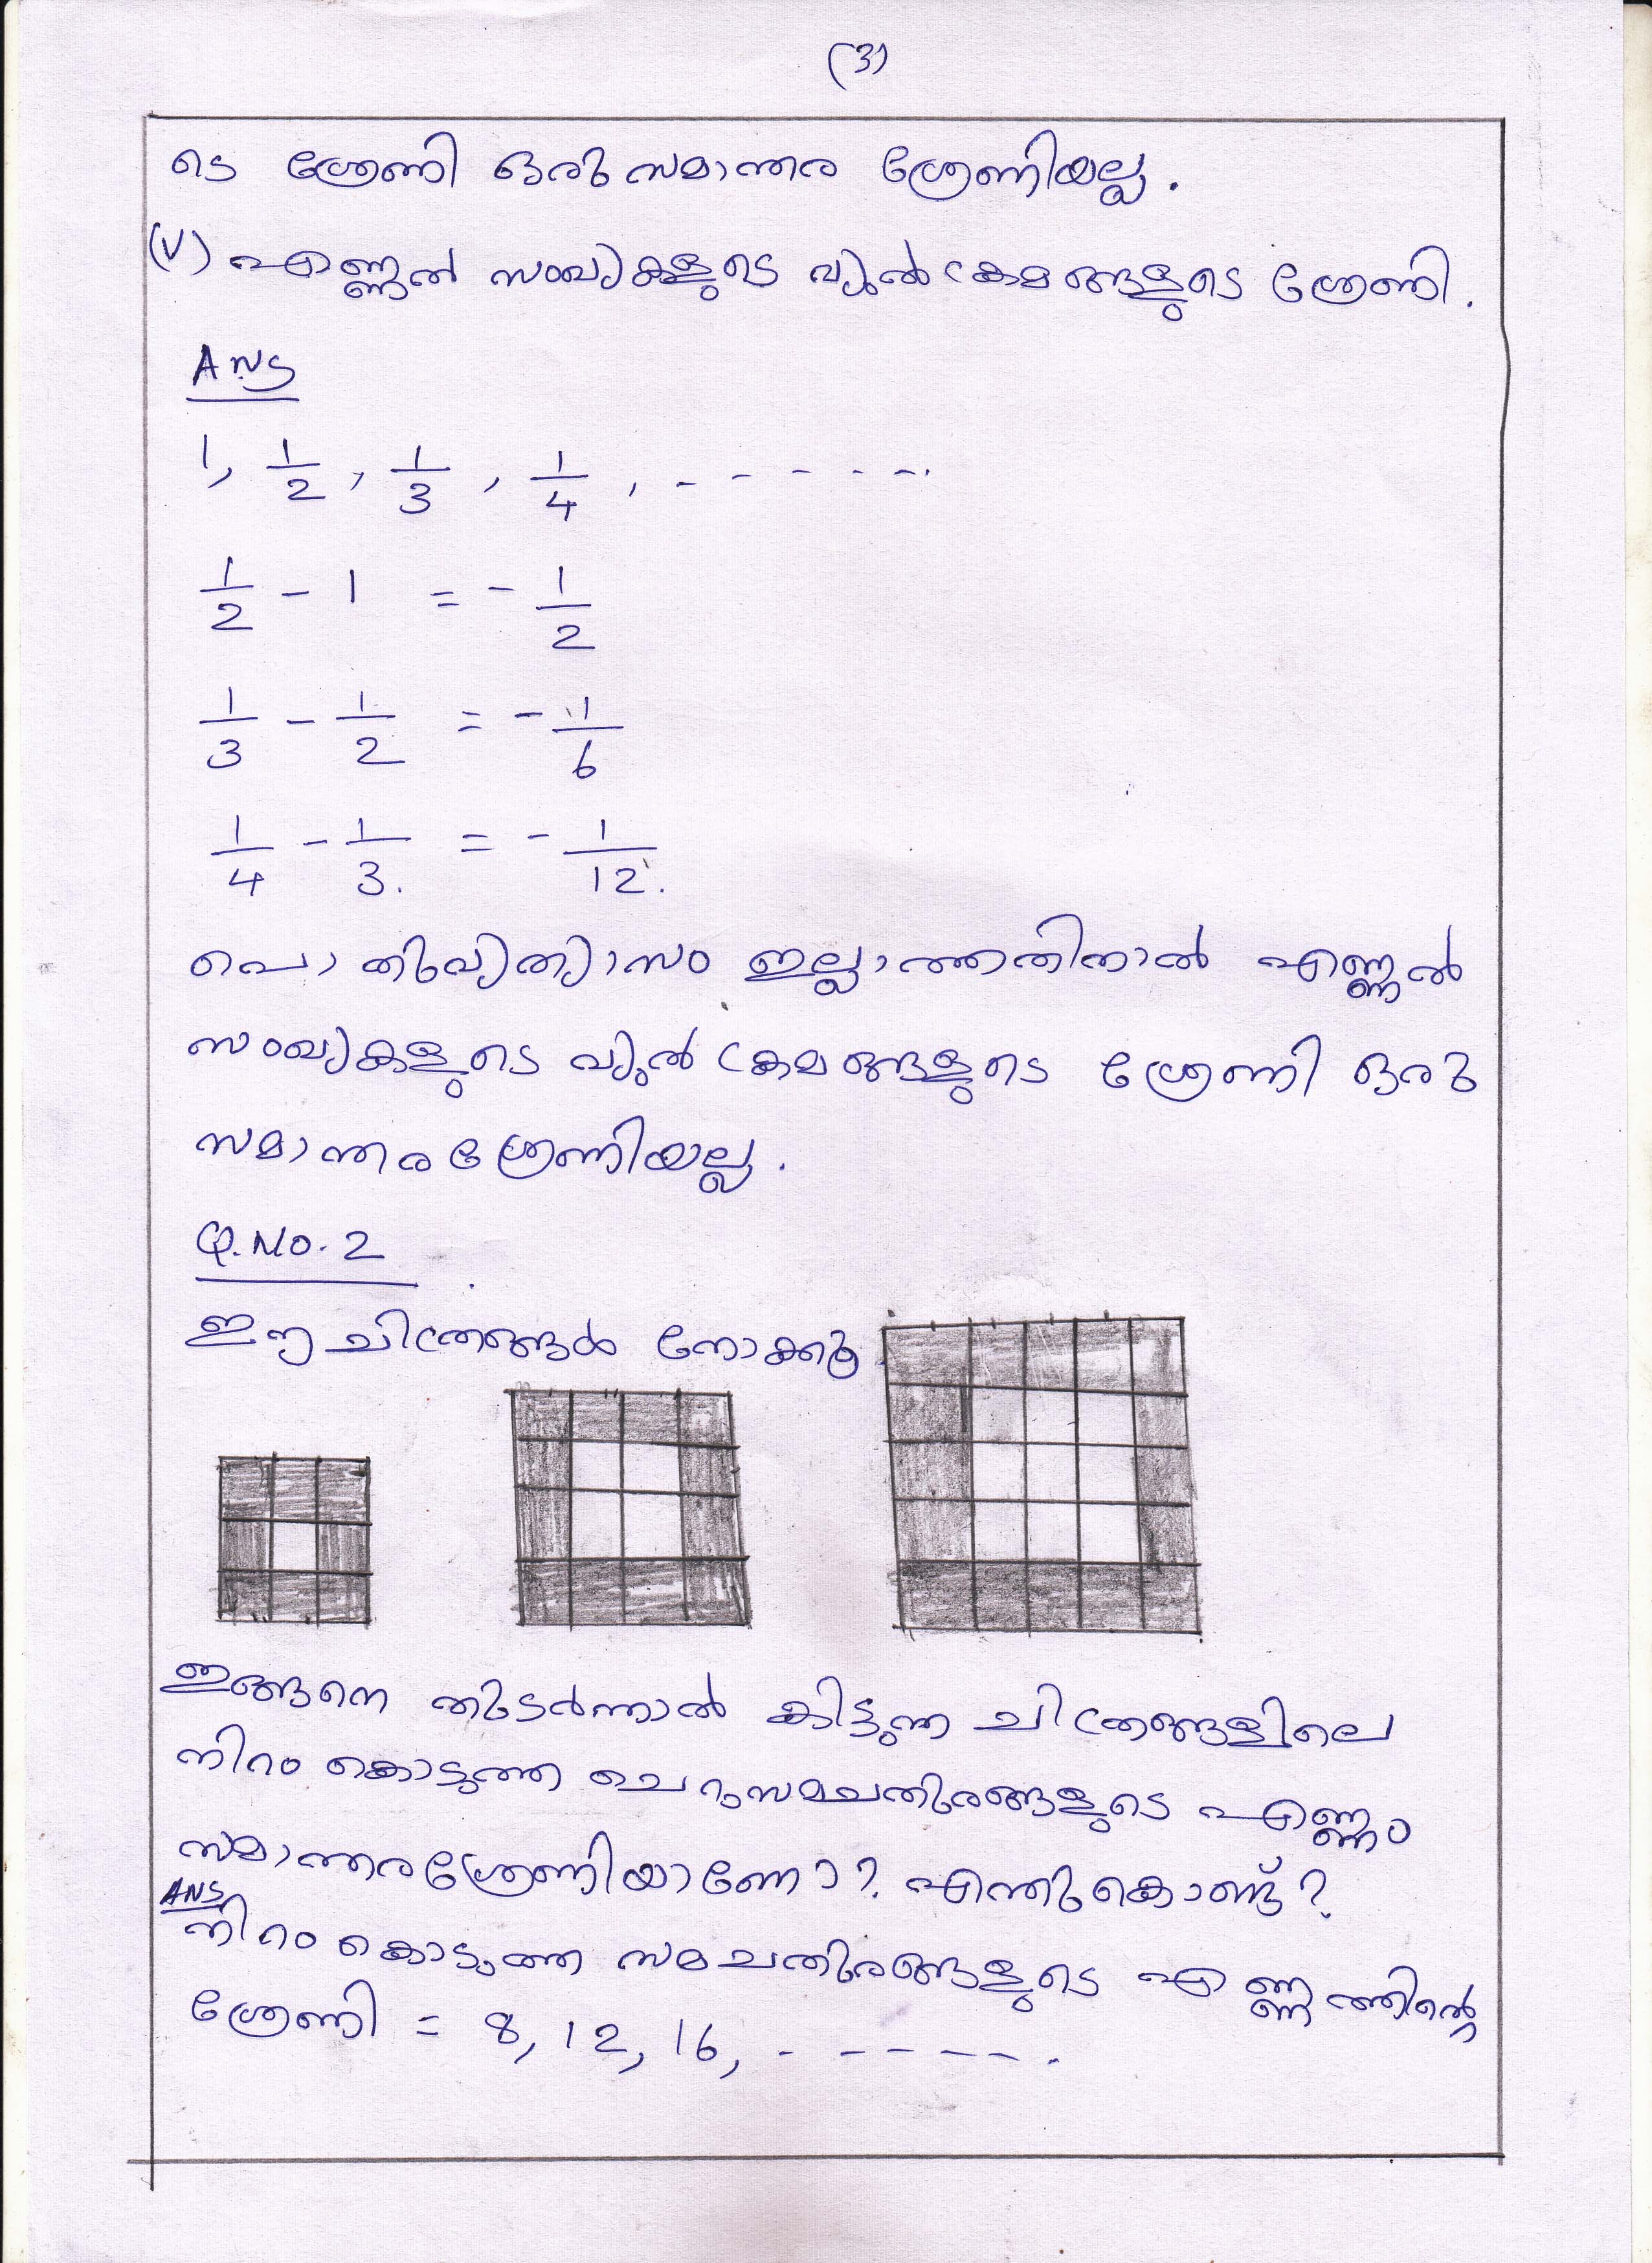 (3)
ടെ ശ്രേണി ഒരു സമാന്തര ശ്രേണിയല്ല.
(V) എണ്ണൽ സംഖ്യകളുടെ വ്യുൽക്രമങ്ങളുടെ ശ്രേണി.
ANS
1, 1/2, 1/3, 1/4, - - - - - -.
1/2 - 1 = - 1/2
1/3 - 1/2 = - 1/6
1/4 - 1/3. = - 1/12.
പൊതുവ്യത്യാസം ഇല്ലാത്തതിനാൽ എണ്ണൽ
സംഖ്യകളുടെ വ്യുൽക്രമങ്ങളുടെ ശ്രേണി ഒരു
സമാന്തരശ്രേണിയല്ല.
Q.NO.2
ഈ ചിത്രങ്ങൾ നോക്കൂ
ഇങ്ങനെ തുടർന്നാൽ കിട്ടുന്ന ചിത്രങ്ങളിലെ
നിറം കൊടുത്ത ചെറുസമചതുരങ്ങളുടെ എണ്ണം
സമാന്തരശ്രേണിയാണോ?. എന്തുകൊണ്ട്?
ANS
നിറം കൊടുത്ത സമചതുരങ്ങളുടെ എണ്ണത്തിന്റെ
ശ്രേണി = 8, 12, 16, - - - - - -.